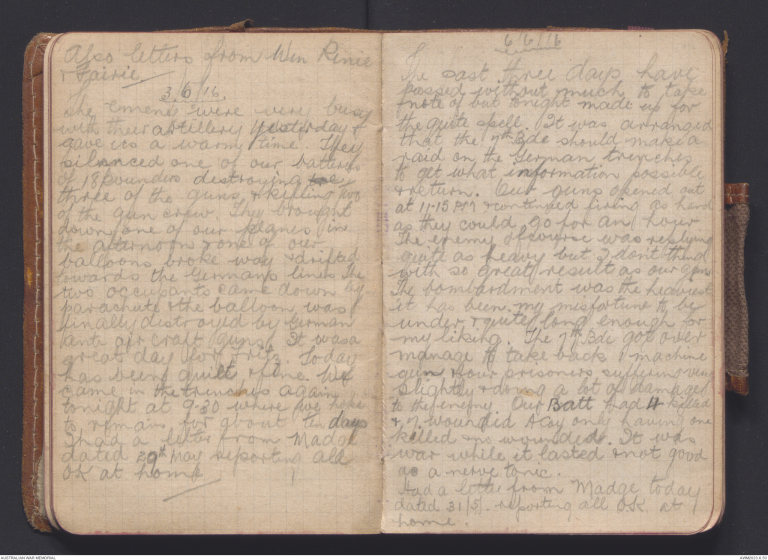 Also letters from Win Rinie
& Fairie.
3/6/16.
The enemy were very busy
with their artillery yesterday &
gave us a warm time. They
silenced one of our batteries
of 18 pounders destroying
three of the guns & killing two
of the gun crew. They brought
down one of our planes in
the afternoon & one of our
balloons broke way & drifted
towards the Germans lines. The
two occupants came down by
parachute & the balloon was
finally destroyed by German
anti air craft guns. It was a
great day for Fritz. Today
has been quiet & fine. We
came in the trenches again
tonight at 9.30 where we hope
to remain for about ten days
I had a letter from Madge
dated 29th May reporting all
OK at home
6/6/16
The last three days have
passed without much to take
note of but tonight made up for
the quite spell. It was arranged
that the 7th Bde should make a
raid on the German trenches
to get what information possible
& return. Our guns opened out
at 11-15 PM & continued firing as hard
as they could go for an hour
The enemy of course was replying
quite as heavy but I dont think
with so great result as our guns
The bombardment was the heaviest
it has been my misfortune to be
under & quite long enough for
my liking. The 7th Bde got over
manage to take back 1 machine
gun & four prisoners suffering very
slightly & doing a lot of damage
to the enemy. Our Batt had 4 killed
& 7 wounded A Coy only having one
killed & no wounded. It was
war while it lasted & not good
as a nerve tonic.
Had a letter from Madge today
dated 31/5/. reporting all OK at
home.
AUSTRALIAN WAR MEMORIAL